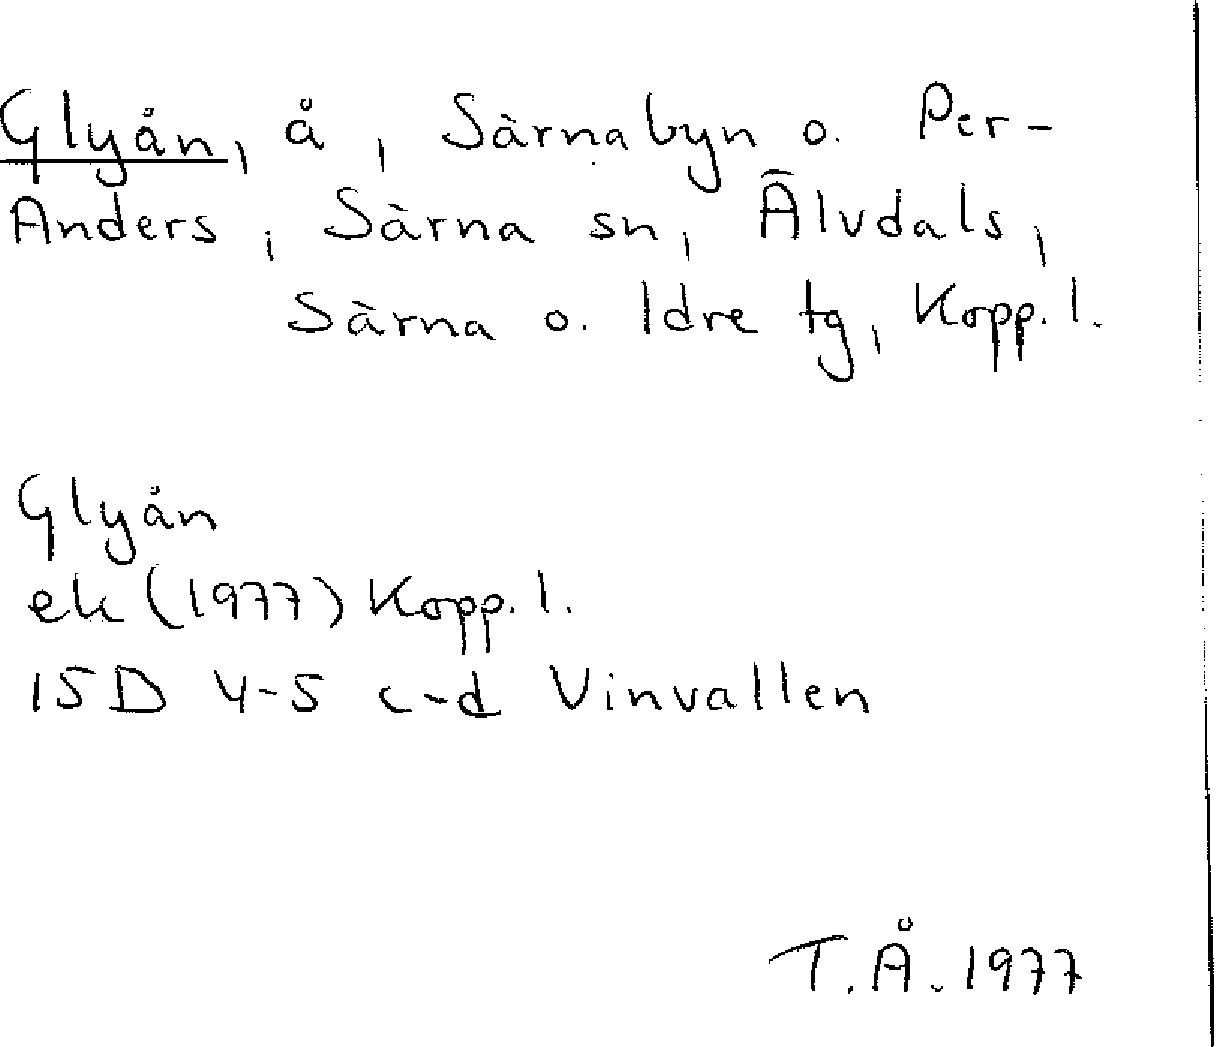 Glyån, å, Särnabyn o. Per-
Anders, Särna sn, Älvdals,
Särna o. Idre tg, Kopp. l.
Glyån
ek (1977) Kopp. l.
15D 4-5 c-d Vinvallen
T.Å. 1977